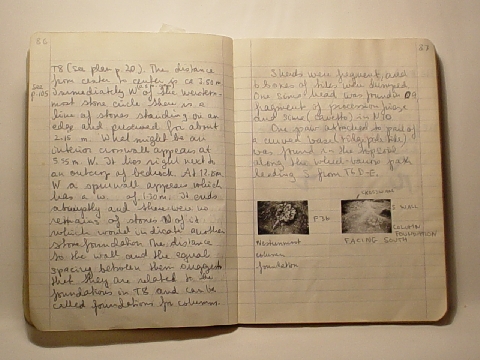 86
T8 (see plan p. 20). The distance
from center to center is ca 2.50 m.
See
p. 105
Immediately W of the western-
most stone circle there is a
line of stones standing on an
edge and preserved for about
2.15 m. What might be an
interior crosswall appears at
5.75 m. W. It lies right next to
an outcrop of bedrock. At 12.80 m
W a spur wall appears which
has a w. of 1.30 m. It ends
abruptly and there were no
remains of stones N of it
which would indicate another
stone foundation. The distance
to the wall and the equal
spacing between them suggests
that they are related to the
foundations in T8 and can be
called foundations for columns.
87
3 leads were frequent, and
6 boxes of tiles were dumped.
One small head was found on a
fragment of procession frieze
and sime (cavetto) in N10
One paw attached to part of
a curved base (ridgepole tile)
was found in the topsoil
along the wheel-barrow path
leading S from T6D-E.
Westernmost
column
foundation
P. 36
CROSSWALL
S WALL
COLUMN
FOUNDATION
FACING SOUTH